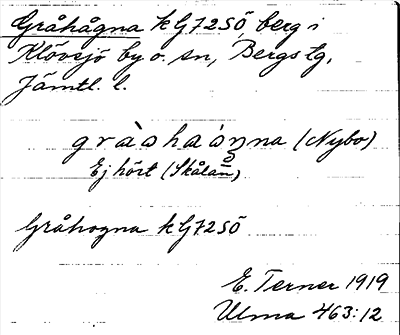 Gråhågna k G72SÖ, berg i
Klövsjö by o. sn, Bergs tg,
Jämtl. l.
(Nybo)
Ej hört (Skålan)
Gråhogna k G72SÖ
E. Terner 1919
Ulma 463:12